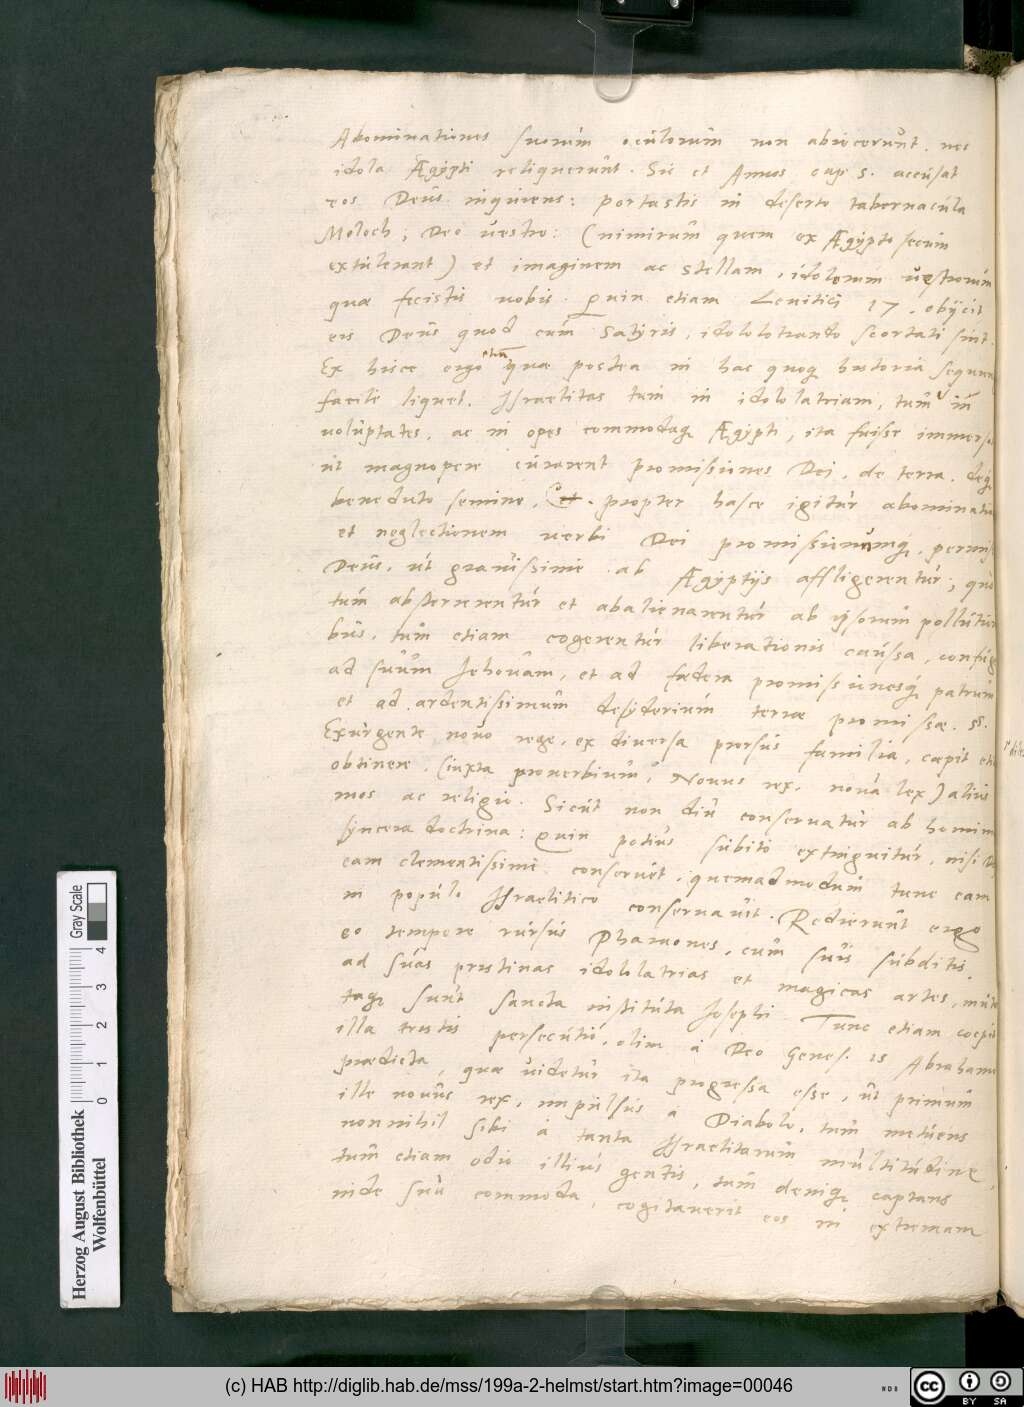 Abominationes suorum oculorum non abiecerunt, nec
idola Ægypti reliquerunt. Sic et Amos cap 5. accusat
eos Deus inquiens: Portastis in deserto tabernacula
Moloch, Deo vestro: (nimirum quem ex Ægypto secum
extulerant) et imaginem ac stellam, idolorum vestrorum
quæ fecistis vobis. Quin etiam Levitici 17, obijcit
eis Deus quod cum Satyris, idololotrando scortati sint.
Ex hisce ergo etiam quæ postea in hac quoq historia sequun
facile liquet. Israelitas tum in idololatriam, tum in
voluptates, ac in opes commodaq Ægypti, ita fuisse immerso
ut magnopere curarent promissiones Dei, de terra, deq
benedicto semine, propter hasce igitur abominatio
et neglectionem verbi Dei promissionumq, permis
Deus, ut gravissime ab Ægyptijs affligerentur; quo
tum absterrerentur et abalienarentur ab ipsorum pollutio
bus, tum etiam cogerentur liberationis causa, confug
ad suum Jehovam, et ad fædera promissionesq patrum
et ad ardentissimum desyderium terræ promissæ. ss.
Exurgente novo rege, ex diversa prorsus familia, cæpit eti
obtinere, (iuxta proverbium, Novus rex, nova lex) alius
mos ac religio. Sicut non diu conservatur ab homin
syncera doctrina: Quin potius subito extinguitur, nisi
eam clementissime conservet, quemadmodum tunc eam
in populo Israelitico conservavit. Redierunt ergo
eo tempore rursus Pharaones, cum suis subditis,
ad suas pristinas idololatrias et magicas artes, muta
taq sunt sancta instituta Josephi. Tunc etiam coepit
illa tristis persecutio, olim a Deo Genes. 15 Abrahamo
prædicta, quæ videtur ita progressa esse, ut primum
ille novus rex, impulsus a Diabolo, tum metuens
nonnihil sibi a tanta Israelitarum multitudine,
tum etiam odio illius gentis, tum deniq captans
inde sua commoda, cogitaverit eos in extremam
Gray Scale
4
3
2
1
0
Herzog August Bibliothek
Wolfenbüttel
(c) HAB http://diglib.hab.de/mss/199a-2-helmst/start.htm?image=00046
cc BY SA